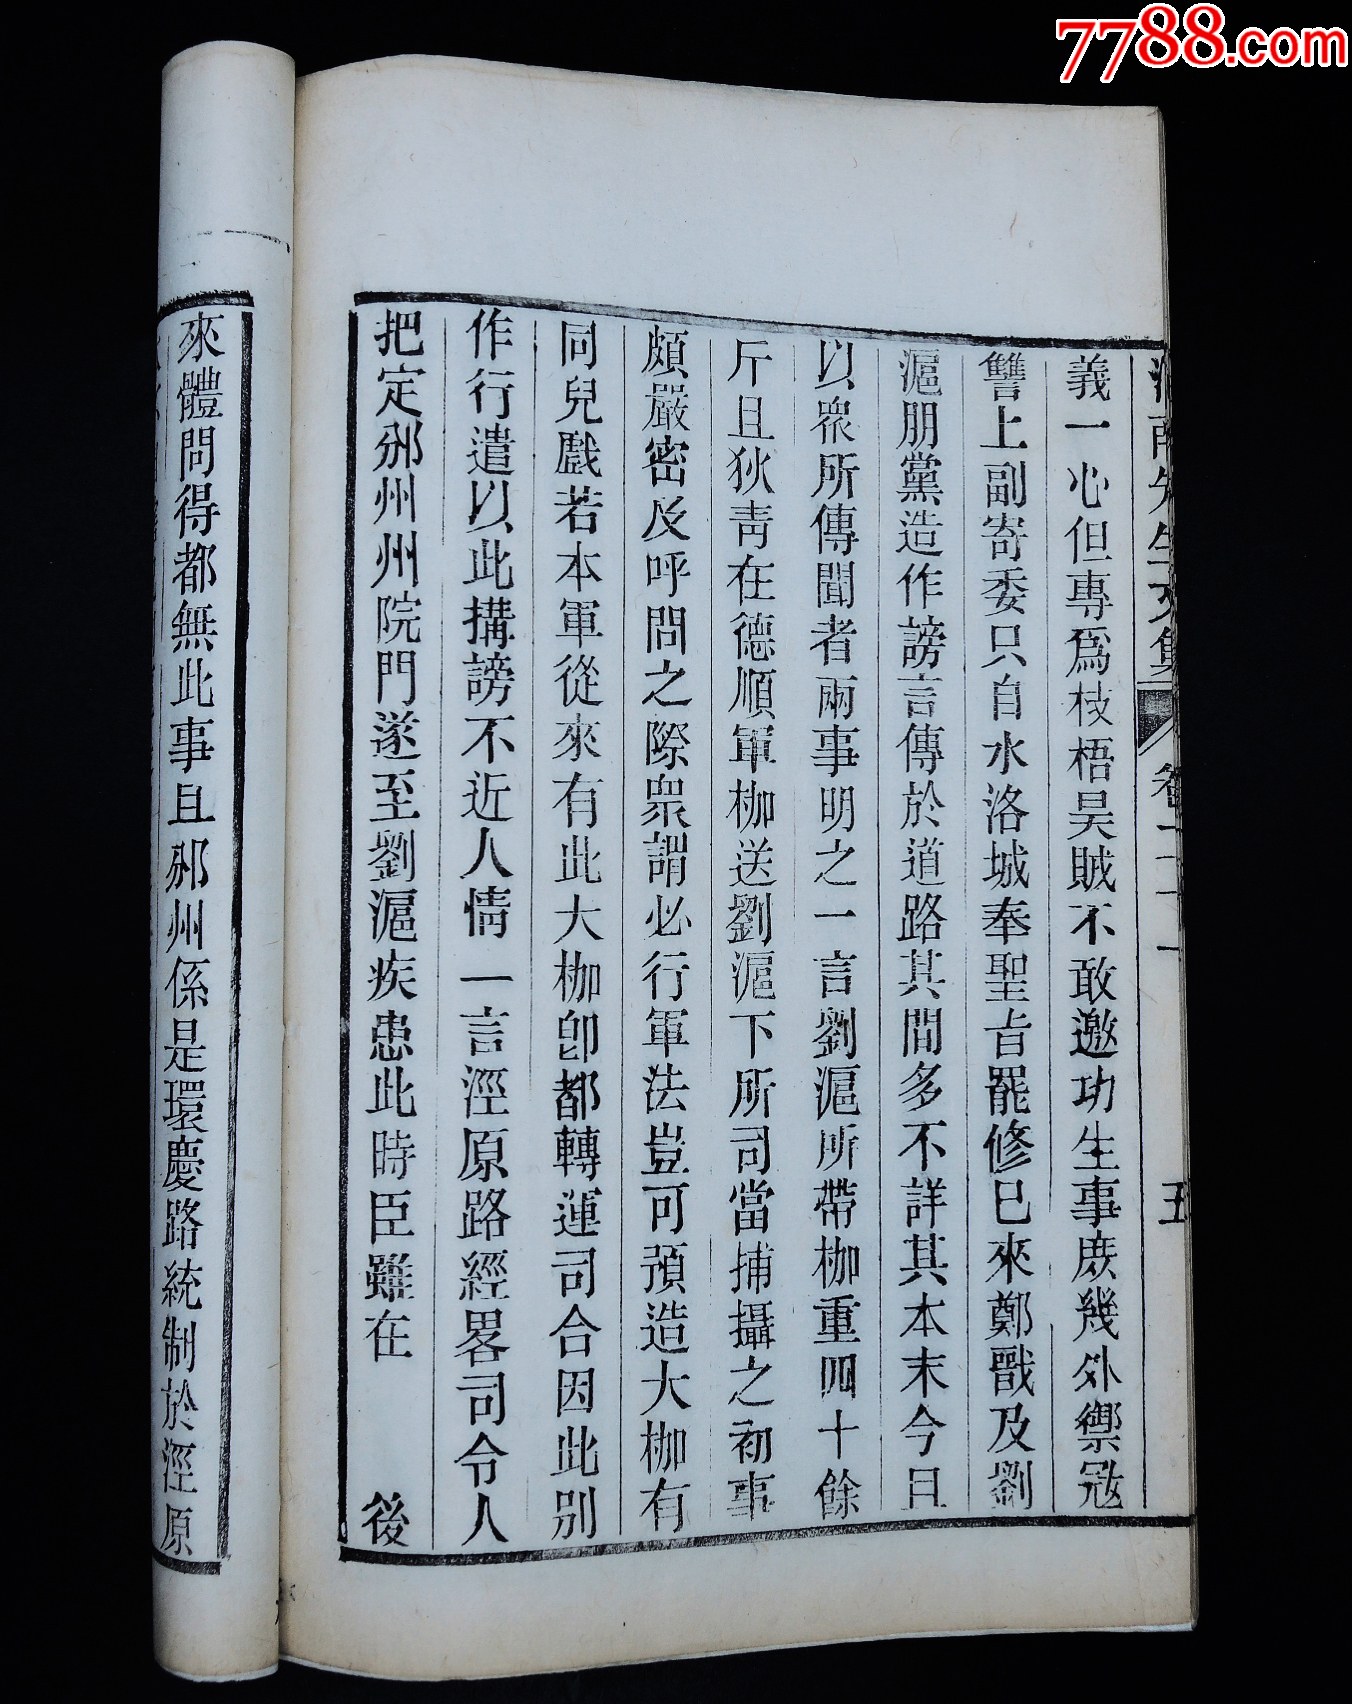 7788.com
河南先生文集 卷二十一 五
義一心但專為枝梧昊賊不敢邀功生事庶幾外禦冦
讐上副寄委只自水洛城奉聖旨罷修已來鄭戩及劉
滬朋黨造作謗言傳於道路其間多不詳其本末今且
以衆所傳聞者兩事明之一言劉滬所帶枷重四十餘
斤且狄青在德順軍枷送劉滬下所司當捕攝之初事
頗嚴密及呼問之際衆謂必行軍法豈可預造大枷有
同兒戲若本軍從來有此大枷卽都轉運司合因此別
作行遣以此搆謗不近人情一言涇原路經畧司令人
把定邠州州院門遂至劉滬疾患此時臣雖在 後
來體問得都無此事且邠州係是環慶路統制於涇原